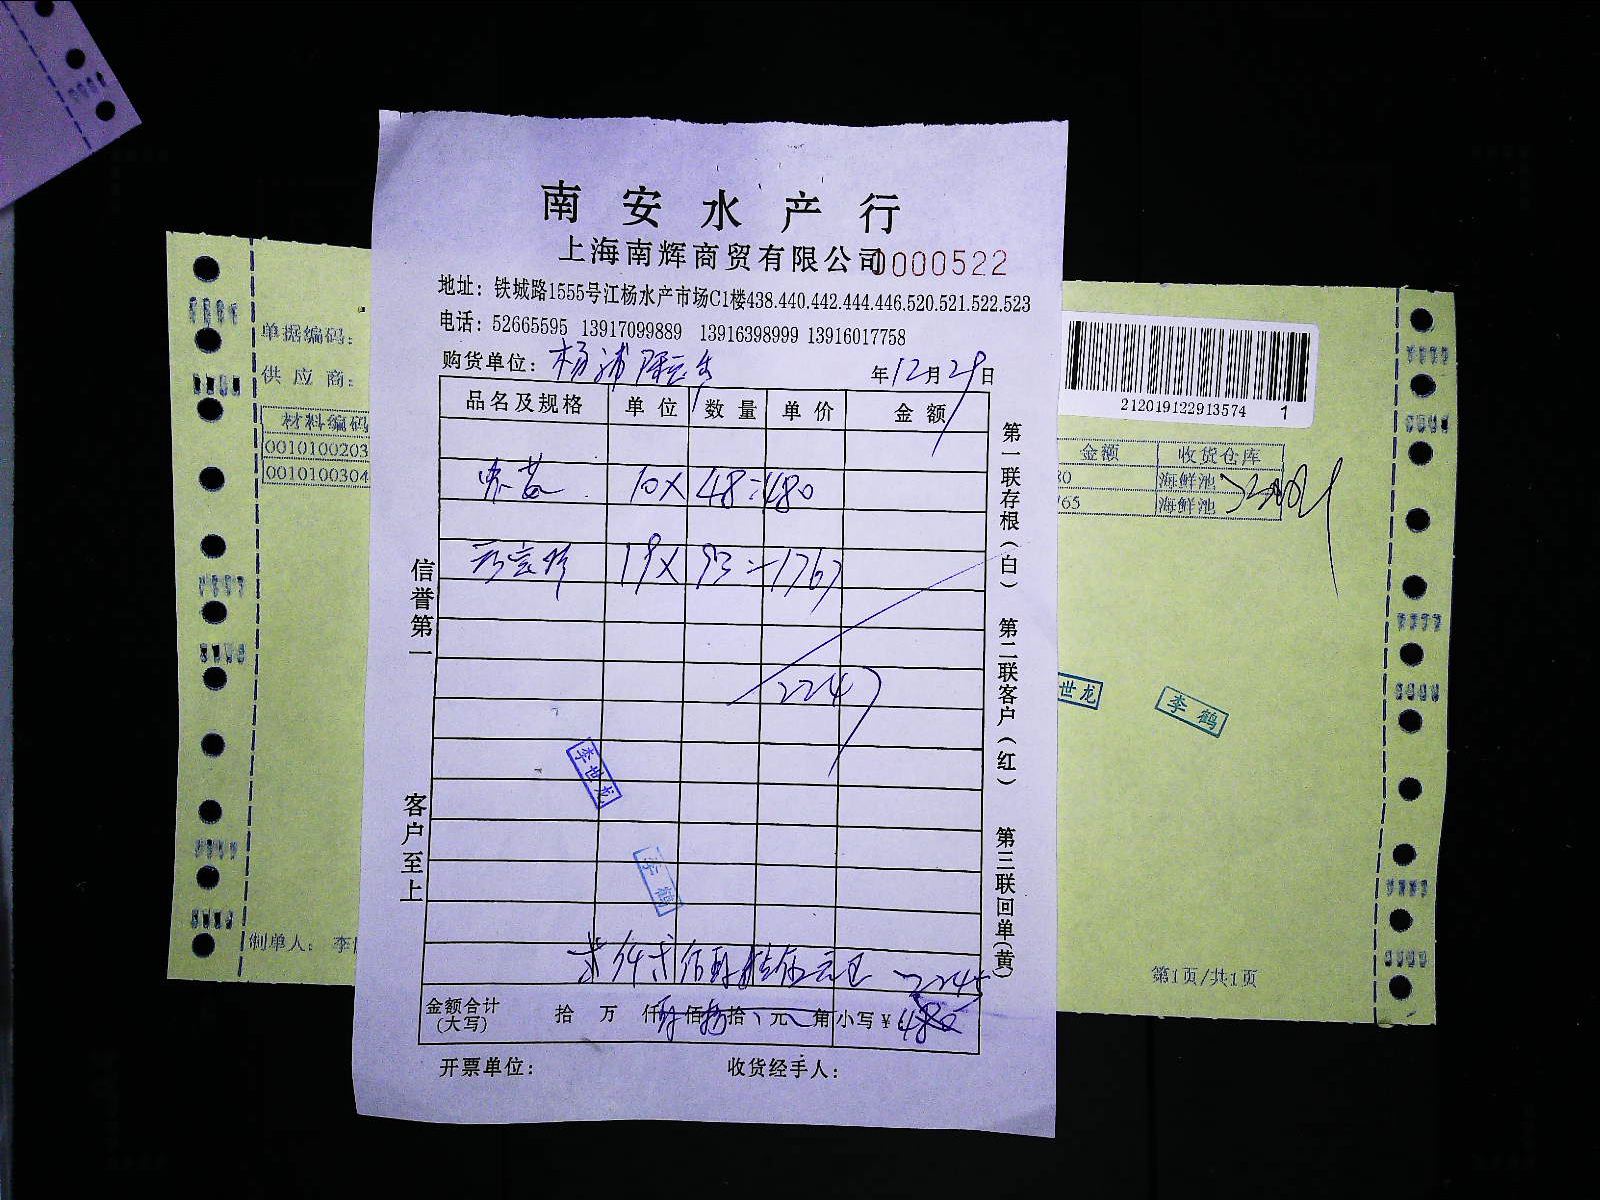 南安水产行
上海南辉商贸有限公司 0000522
地址：铁城路1555号江杨水产市场C1楼438.440.442.444.446.520.521.522.523
电话：52665595 13917099889 13916398999 13916017758
购货单位：杨浦 年12月29日
品名及规格 单位 数量 单价 金额
10X 48=480
19X 93=1767
2247
李世龙
李鹤
2245
金额合计（大写） 拾 万 仟 佰 拾 元 角 小写¥480
开票单位： 收货经手人：
信誉第一 客户至上
第一联存根（白） 第二联客户（红） 第三联回单（黄）
单据编码：
供应商：
材料编码
0010100203
0010100304
制单人：李
212019122913574 1
金额 收货仓库
80 海鲜池
765 海鲜池
世龙
李鹤
第1页/共1页